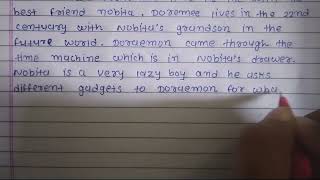 best friend nobita. Doremee lives in the 22nd
centuary with Nobita's grandson in the
future world. Doraemon came through the
time machine which is in Nobita's drawer.
Nobita is a very lazy boy and he asks
different gadgets to Doraemon for wha